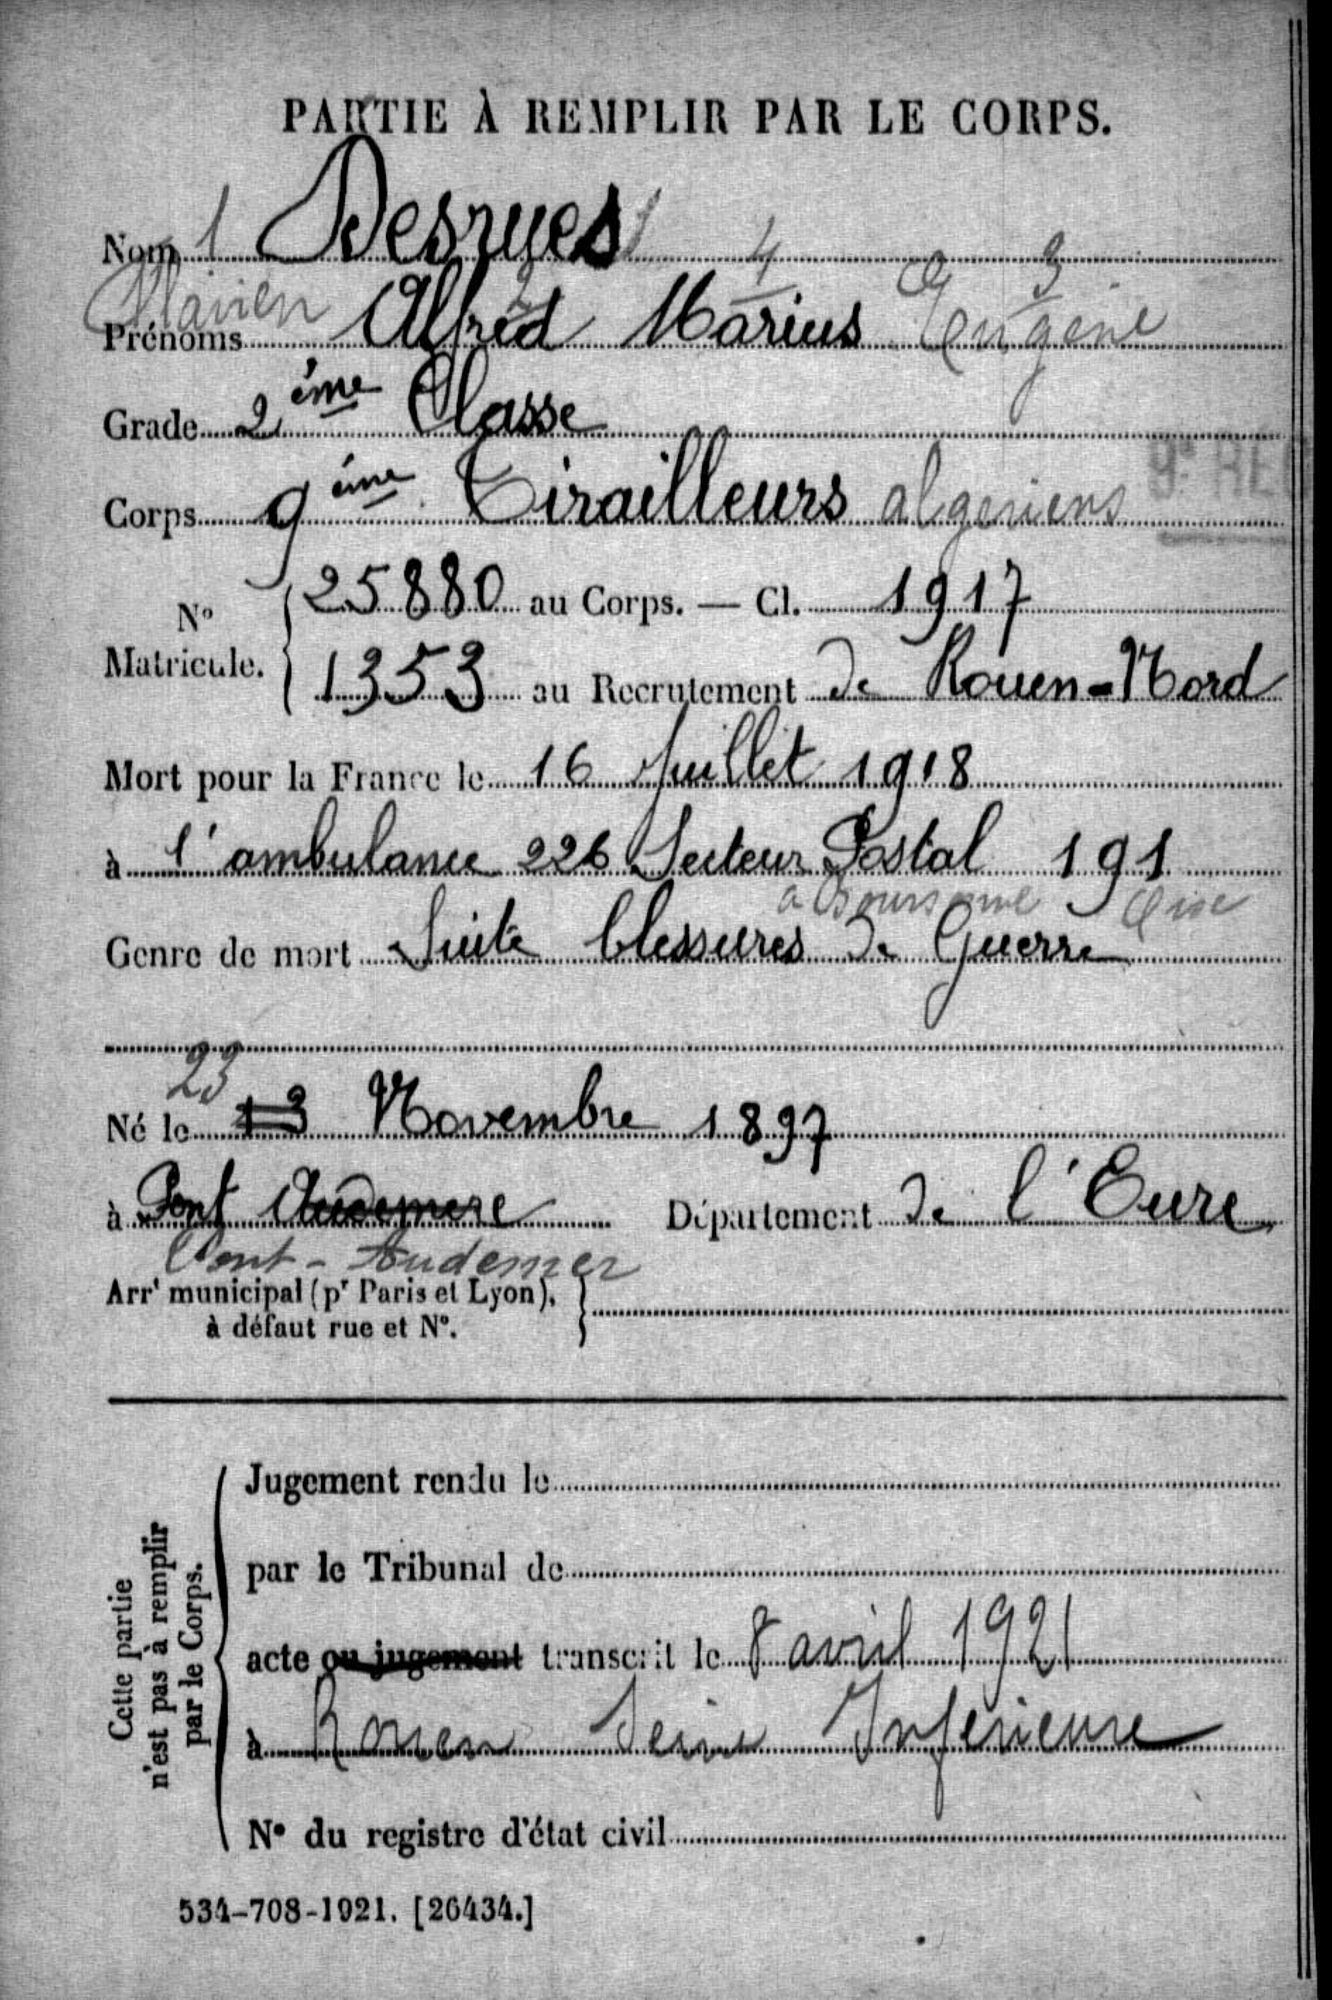 PARTIE À REMPLIR PAR LE CORPS.
Nom 1 Desrues
4 3
Flavien
Prénoms Alfred 2 Marius Eugène
Grade 2ème Classe
Corps 9ème Tirailleurs algeriens 9e RÉG
No Matricule. { 25880 au Corps. — Cl. 1917
1353 au Recrutement de Rouen-Nord
Mort pour la France le 16 Juillet 1918
à l'ambulance 226 Secteur Postal 191
à Boursonne Oise
Genre de mort Suite blessures de Guerre
23
Né le 13 Novembre 1897
à Pont Audemere Département de l'Eure
Pont-Audemer
Arrt municipal (pr Paris et Lyon), }
à défaut rue et No.
Cette partie
n'est pas à remplir
par le Corps.
Jugement rendu le
par le Tribunal de
acte ou jugement transcrit le 8 avril 1921
à Rouen Seine Inferieure
No du registre d'état civil
534-708-1921. [26434.]